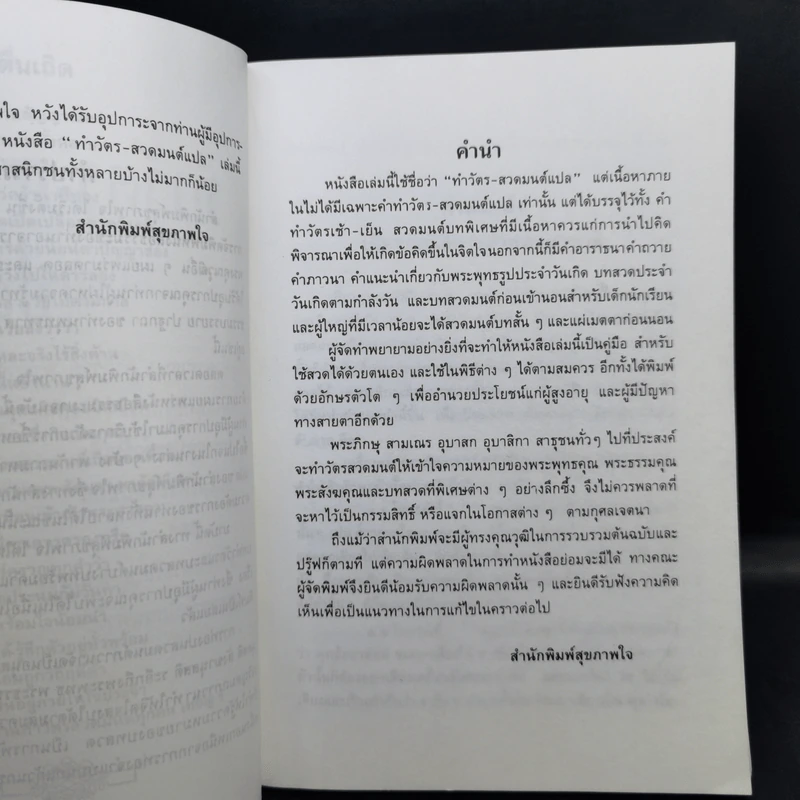 พใจ หวังได้รับอุปการะจากท่านผู้มีอุปการ-
หนังสือ “ ทำวัตร-สวดมนต์แปล” เล่มนี้
าสนิกชนทั้งหลายบ้างไม่มากก็น้อย
สำนักพิมพ์สุขภาพใจ
คำนำ
หนังสือเล่มนี้ใช้ชื่อว่า “ทำวัตร-สวดมนต์แปล” แต่เนื้อหาภาย
ในไม่ได้มีเฉพาะคำทำวัตร-สวดมนต์แปล เท่านั้น แต่ได้บรรจุไว้ทั้ง คำ
ทำวัตรเช้า-เย็น สวดมนต์บทพิเศษที่มีเนื้อหาควรแก่การนำไปคิด
พิจารณาเพื่อให้เกิดข้อคิดขึ้นในจิตใจนอกจากนี้ก็มีคำอาราธนาคำถวาย
คำภาวนา คำแนะนำเกี่ยวกับพระพุทธรูปประจำวันเกิด บทสวดประจำ
วันเกิดตามกำลังวัน และบทสวดมนต์ก่อนเข้านอนสำหรับเด็กนักเรียน
และผู้ใหญ่ที่มีเวลาน้อยจะได้สวดมนต์บทสั้น ๆ และแผ่เมตตาก่อนนอน
ผู้จัดทำพยายามอย่างยิ่งที่จะทำให้หนังสือเล่มนี้เป็นคู่มือ สำหรับ
ใช้สวดได้ด้วยตนเอง และใช้ในพิธีต่าง ๆ ได้ตามสมควร อีกทั้งได้พิมพ์
ด้วยอักษรตัวโต ๆ เพื่ออำนวยประโยชน์แก่ผู้สูงอายุ และผู้มีปัญหา
ทางสายตาอีกด้วย
พระภิกษุ สามเณร อุบาสก อุบาสิกา สาธุชนทั่วๆ ไปที่ประสงค์
จะทำวัตรสวดมนต์ให้เข้าใจความหมายของพระพุทธคุณ พระธรรมคุณ
พระสังฆคุณและบทสวดที่พิเศษต่าง ๆ อย่างลึกซึ้ง จึงไม่ควรพลาดที่
จะหาไว้เป็นกรรมสิทธิ์ หรือแจกในโอกาสต่าง ๆ ตามกุศลเจตนา
ถึงแม้ว่าสำนักพิมพ์จะมีผู้ทรงคุณวุฒิในการรวบรวมต้นฉบับและ
ปรู๊ฟก็ตามที แต่ความผิดพลาดในการทำหนังสือย่อมจะมีได้ ทางคณะ
ผู้จัดพิมพ์จึงยินดีน้อมรับความผิดพลาดนั้น ๆ และยินดีรับฟังความคิด
เห็นเพื่อเป็นแนวทางในการแก้ไขในคราวต่อไป
สำนักพิมพ์สุขภาพใจ